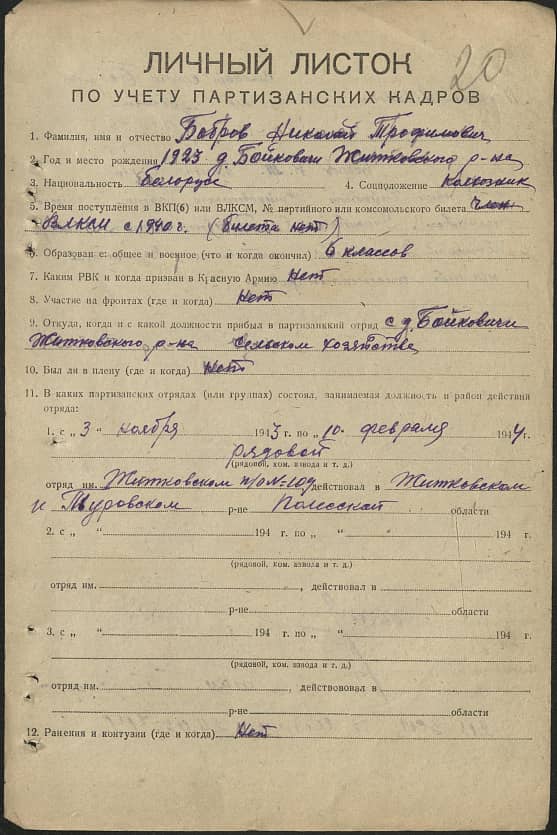 20
ЛИЧНЫЙ ЛИСТОК
ПО УЧЕТУ ПАРТИЗАНСКИХ КАДРОВ
1. Фамилия, имя и отчество Бобров Николай Трофимович
2. Год и место рождения 1923 д. Бойковичи Житковского р-на
3. Национальность белорус 4. Соцположение колхозник
5. Время поступления в ВКП(б) или ВЛКСМ, № партийного или комсомольского билета член
ВЛКСМ с 1940 г. (билета нет)
6. Образование: общее и военное (что и когда окончил) 6 классов
7. Каким РВК и когда призван в Красную Армию Нет
8. Участие на фронтах (где и когда) Нет
9. Откуда, когда и с какой должности прибыл в партизанский отряд с д. Бойковичи
Житковского р-на сельском хозяйстве
10. Был ли в плену (где и когда) Нет
11. В каких партизанских отрядах (или группах) состоял, занимаемая должность и район действия
отряда:
1. с „ 3 “ ноября 1943 г. по „ 10. февраля 1944 г.
рядовой
(рядовой, ком. взвода и т. д.)
отряд им. Житковском п/о № 109 действовал в Житковском
и Туровском р-не Полесской области
2. с „ “ 194 г. по „ “ 194 г.
(рядовой, ком. взвода и т. д.)
отряд им. , действовал в
р-не области
3. с „ “ 194 г. по „ “ 194 г.
(рядовой, ком. взвода и т. д.)
отряд им. , действовал в
р-не области
12. Ранения и контузии (где и когда) Нет